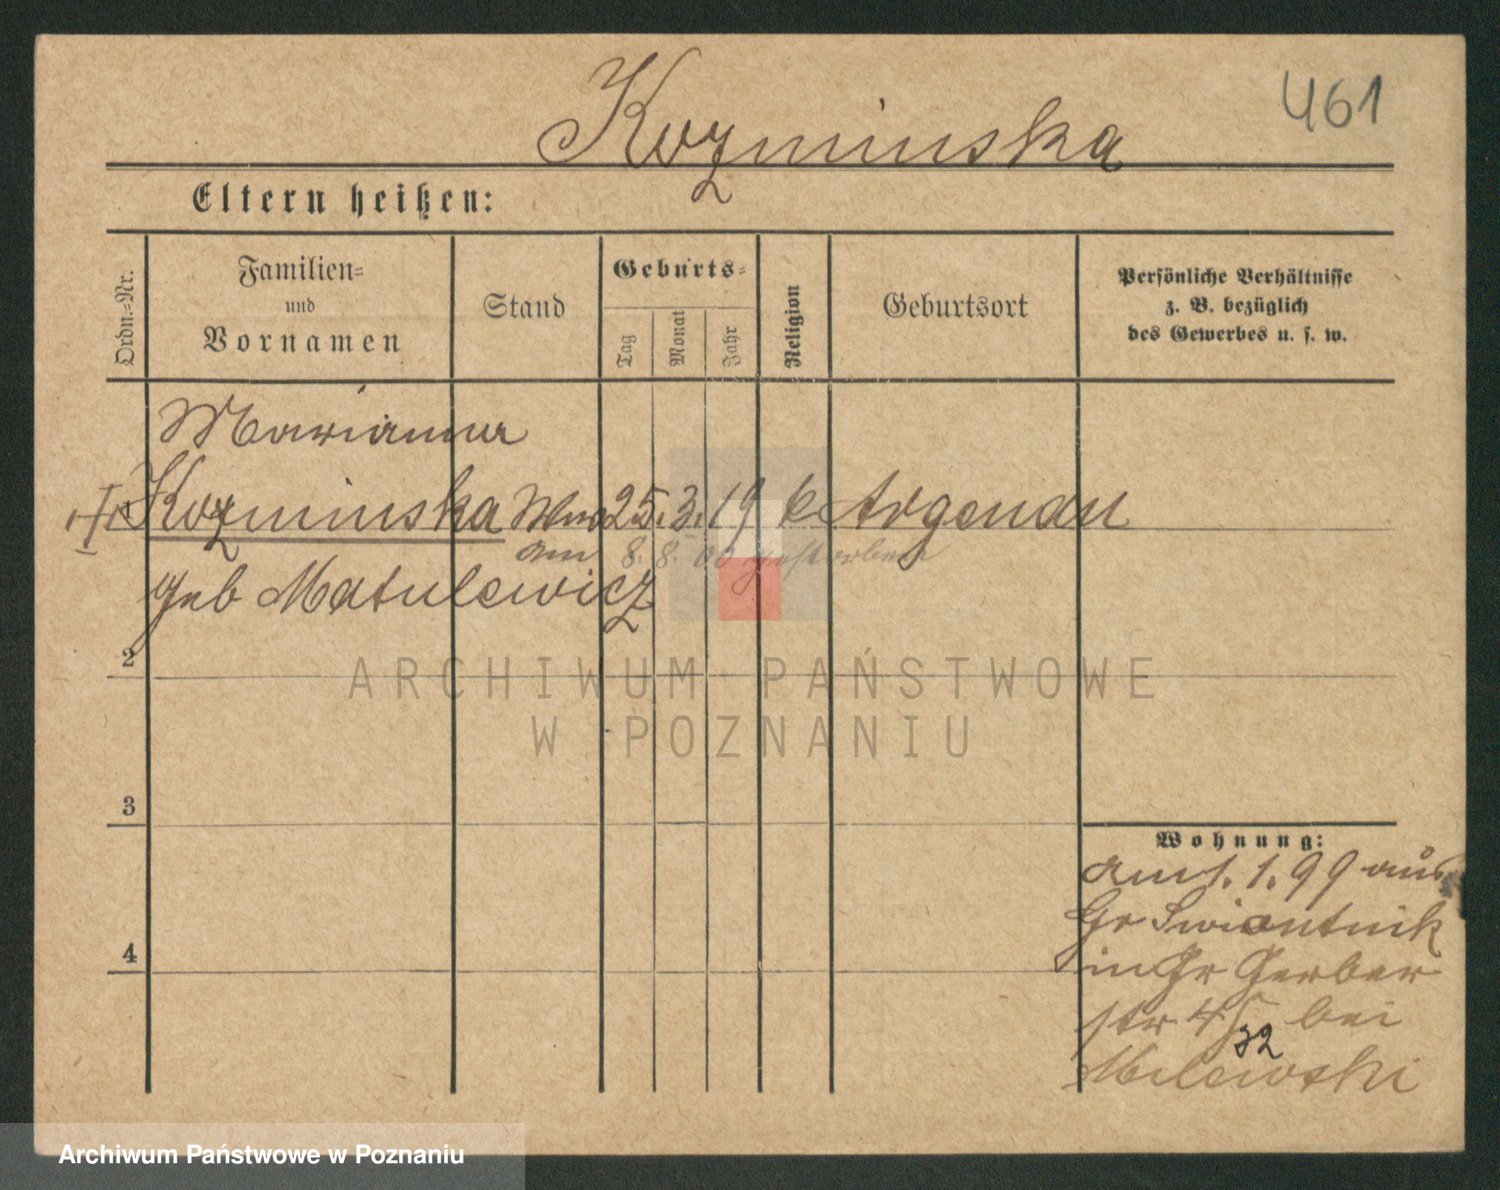 461
Kozminska
Eltern heißen:
Ordn.=Nr.
Familien=
und
Vornamen
Stand
Geburts=
Tag
Monat
Jahr
Religion
Geburtsort
Persönliche Verhältnisse
z. B. bezüglich
des Gewerbes u. s. w.
Marianna
Kozminska 25. 3. 19 k Argenau
am 8. 8. 00 gestorben
geb Matulewicz
2
ARCHIWUM PAŃSTWOWE
W POZNANIU
3
Wohnung:
am 1. 1. 99 aus
Gr Swiontnik
in Gr Gerber
str 45 bei
32
Milewski
4
Archiwum Państwowe w Poznaniu